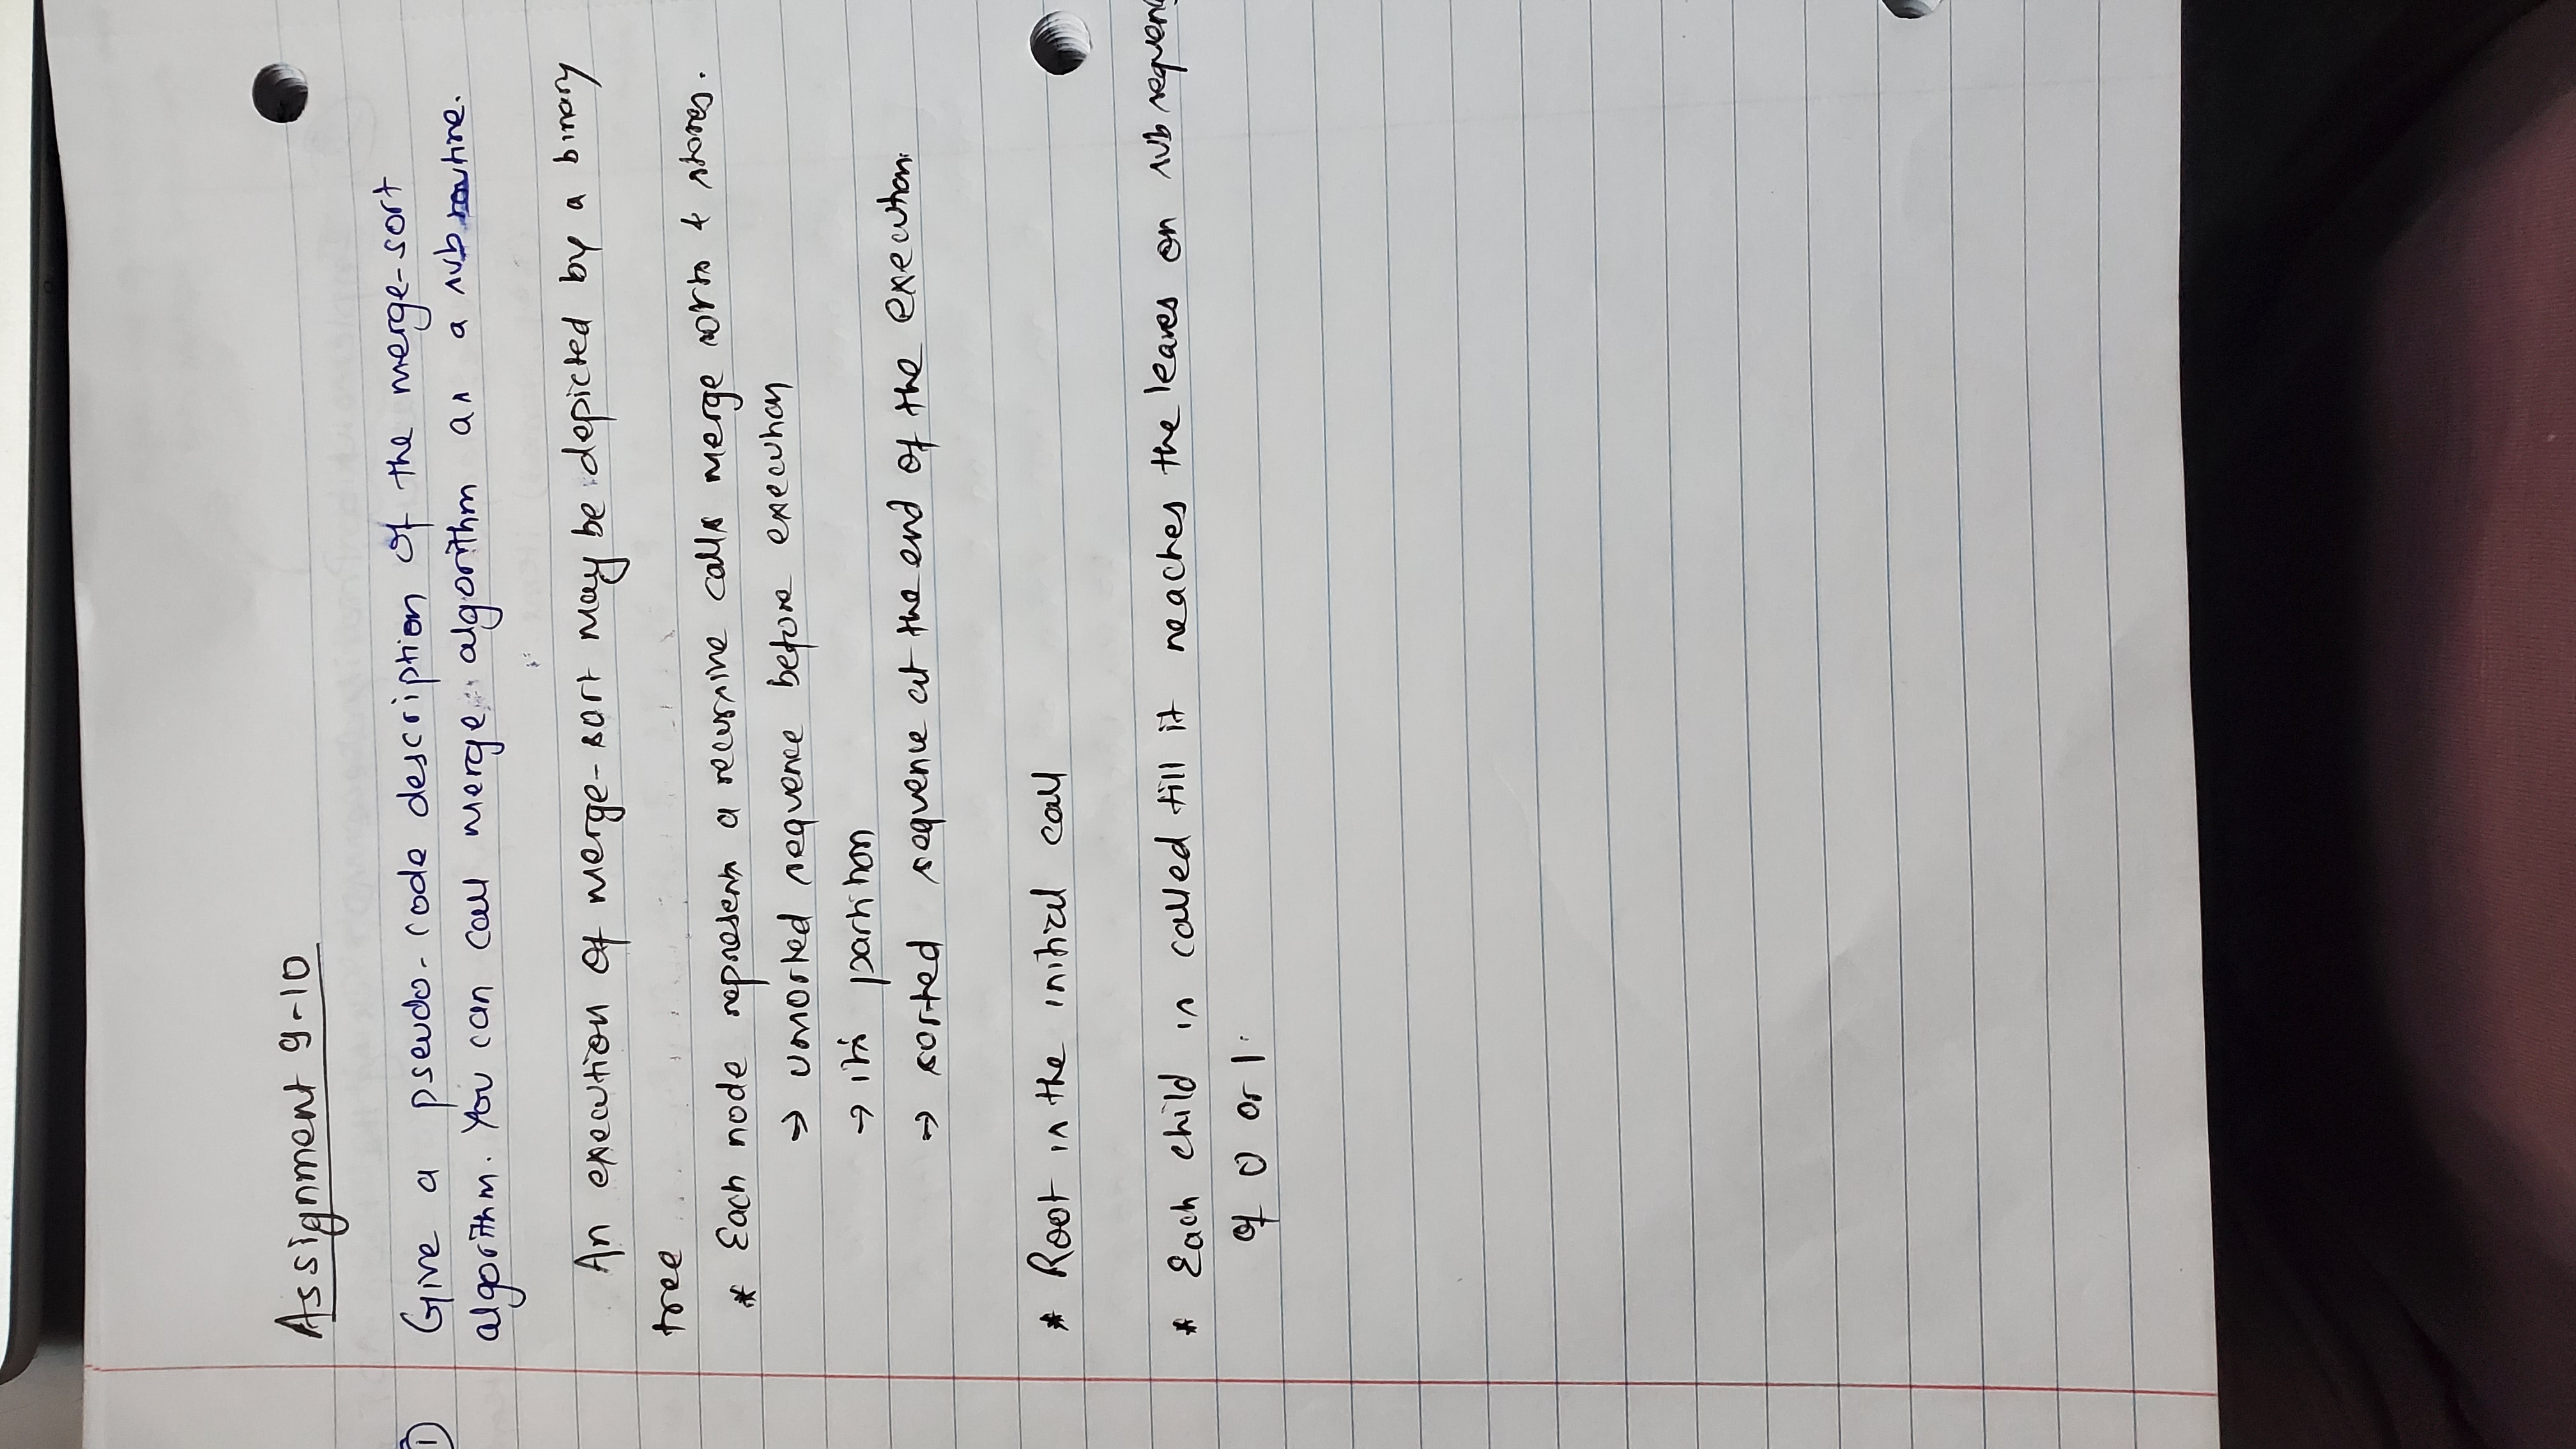 Assignment 9-10
① Give a pseudo-code description of the merge-sort
algorithm. You can call merge algorithm as a subroutine.
An execution of merge-sort may be depicted by a binary
tree
* Each node represents a recursive calls merge sorts & stores.
→ unsorted sequence before execution
→ its partition
→ sorted sequence at the end of the execution.
* Root is the initial call
* Each child is called till it reaches the leaves on subsequenc
of 0 or 1.